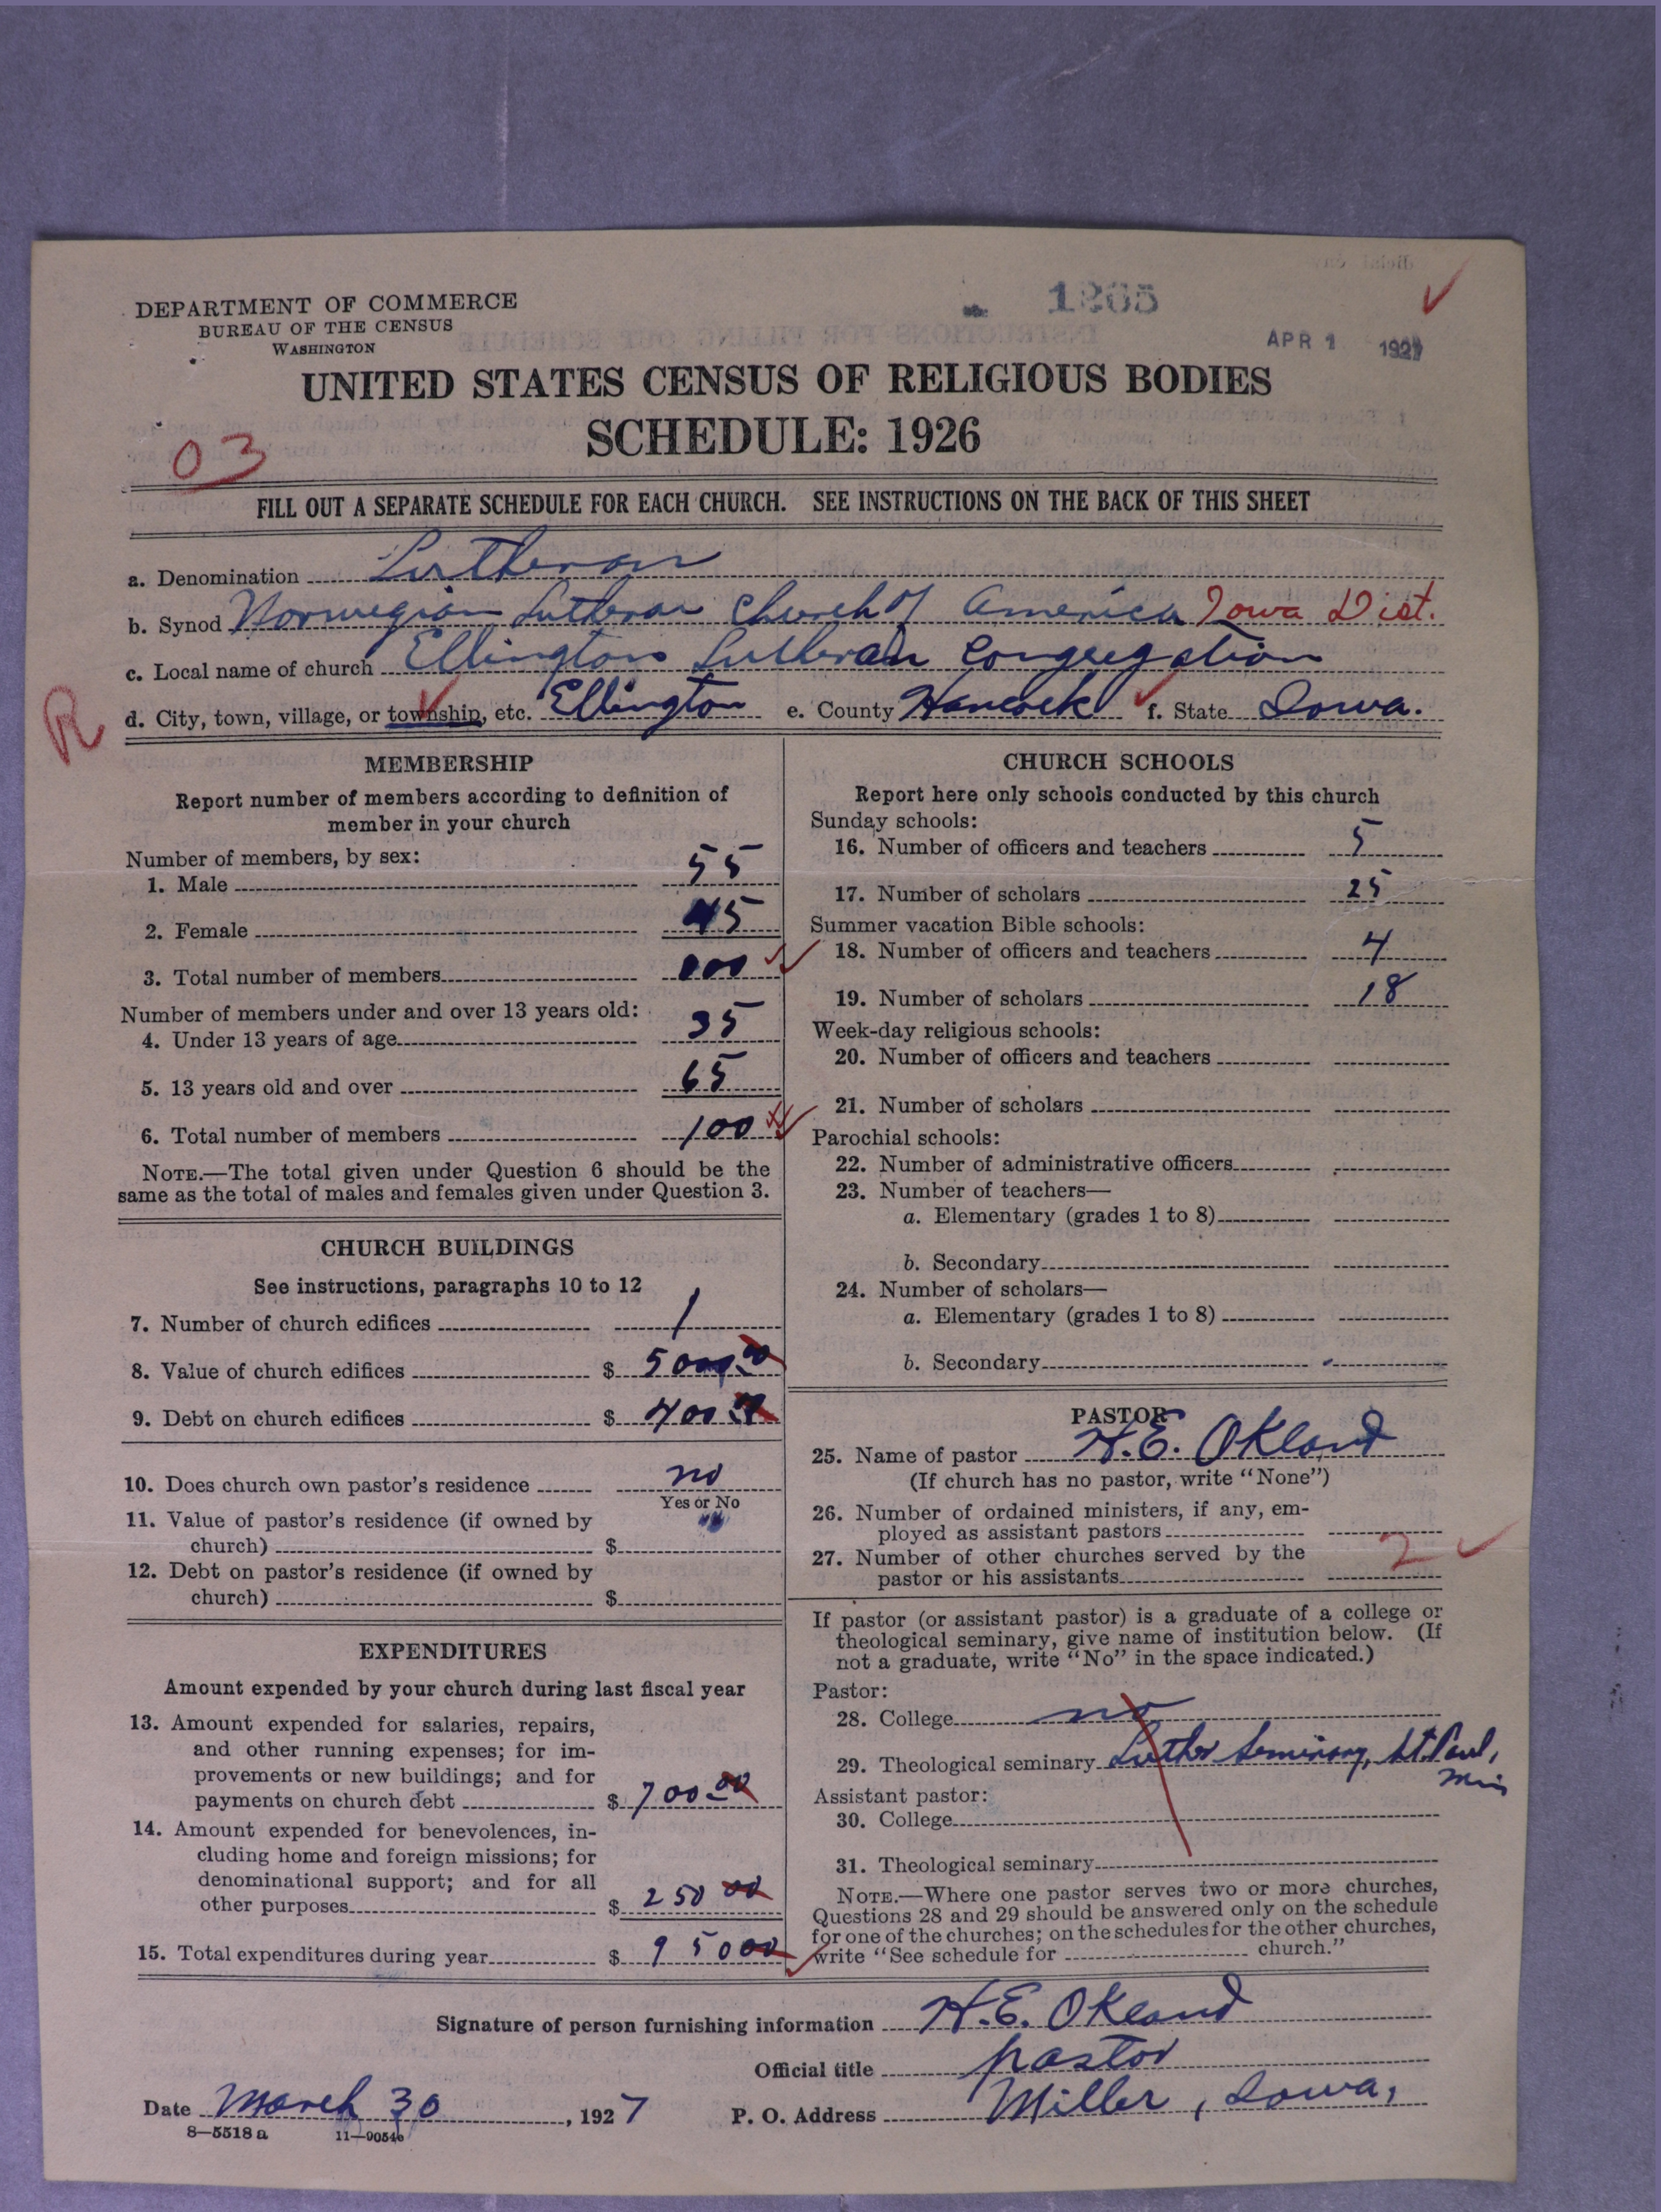 DEPARTMENT OF COMMERCE
BUREAU OF THE CENSUS
WASHINGTON
1265
APR 1 1927
UNITED STATES CENSUS OF RELIGIOUS BODIES
SCHEDULE: 1926
03
FILL OUT A SEPARATE SCHEDULE FOR EACH CHURCH. SEE INSTRUCTIONS ON THE BACK OF THIS SHEET
a. Denomination Lutheran
b. Synod Norwegian Lutheran Church of America Iowa Dist.
c. Local name of church Ellington Lutheran Congregation
R
d. City, town, village, or township, etc. Ellington e. County Hancock f. State Iowa.
MEMBERSHIP
Report number of members according to definition of
member in your church
Number of members, by sex:
1. Male 55
2. Female 45
3. Total number of members 100
Number of members under and over 13 years old:
4. Under 13 years of age 35
5. 13 years old and over 65
6. Total number of members 100
NOTE.—The total given under Question 6 should be the
same as the total of males and females given under Question 3.
CHURCH BUILDINGS
See instructions, paragraphs 10 to 12
7. Number of church edifices 1
8. Value of church edifices $ 5000 00
9. Debt on church edifices $ 400
10. Does church own pastor's residence no
Yes or No
11. Value of pastor's residence (if owned by
church) $
12. Debt on pastor's residence (if owned by
church) $
EXPENDITURES
Amount expended by your church during last fiscal year
13. Amount expended for salaries, repairs,
and other running expenses; for im-
provements or new buildings; and for
payments on church debt $ 700 00
14. Amount expended for benevolences, in-
cluding home and foreign missions; for
denominational support; and for all
other purposes $ 250 00
15. Total expenditures during year $ 950 00
CHURCH SCHOOLS
Report here only schools conducted by this church
Sunday schools:
16. Number of officers and teachers 5
17. Number of scholars 25
Summer vacation Bible schools:
18. Number of officers and teachers 4
19. Number of scholars 18
Week-day religious schools:
20. Number of officers and teachers
21. Number of scholars
Parochial schools:
22. Number of administrative officers
23. Number of teachers—
a. Elementary (grades 1 to 8)
b. Secondary
24. Number of scholars—
a. Elementary (grades 1 to 8)
b. Secondary
PASTOR
25. Name of pastor H.E. Okland
(If church has no pastor, write "None")
26. Number of ordained ministers, if any, em-
ployed as assistant pastors
27. Number of other churches served by the
pastor or his assistants 2
If pastor (or assistant pastor) is a graduate of a college or
theological seminary, give name of institution below. (If
not a graduate, write "No" in the space indicated.)
Pastor:
28. College no
29. Theological seminary Luther Seminary, St. Paul,
Min
Assistant pastor:
30. College
31. Theological seminary
NOTE.—Where one pastor serves two or more churches,
Questions 28 and 29 should be answered only on the schedule
for one of the churches; on the schedules for the other churches,
write "See schedule for church."
Signature of person furnishing information H.E. Okland
Official title pastor
Date March 30, 1927 P. O. Address Miller, Iowa,
8—5518 a 11—9054